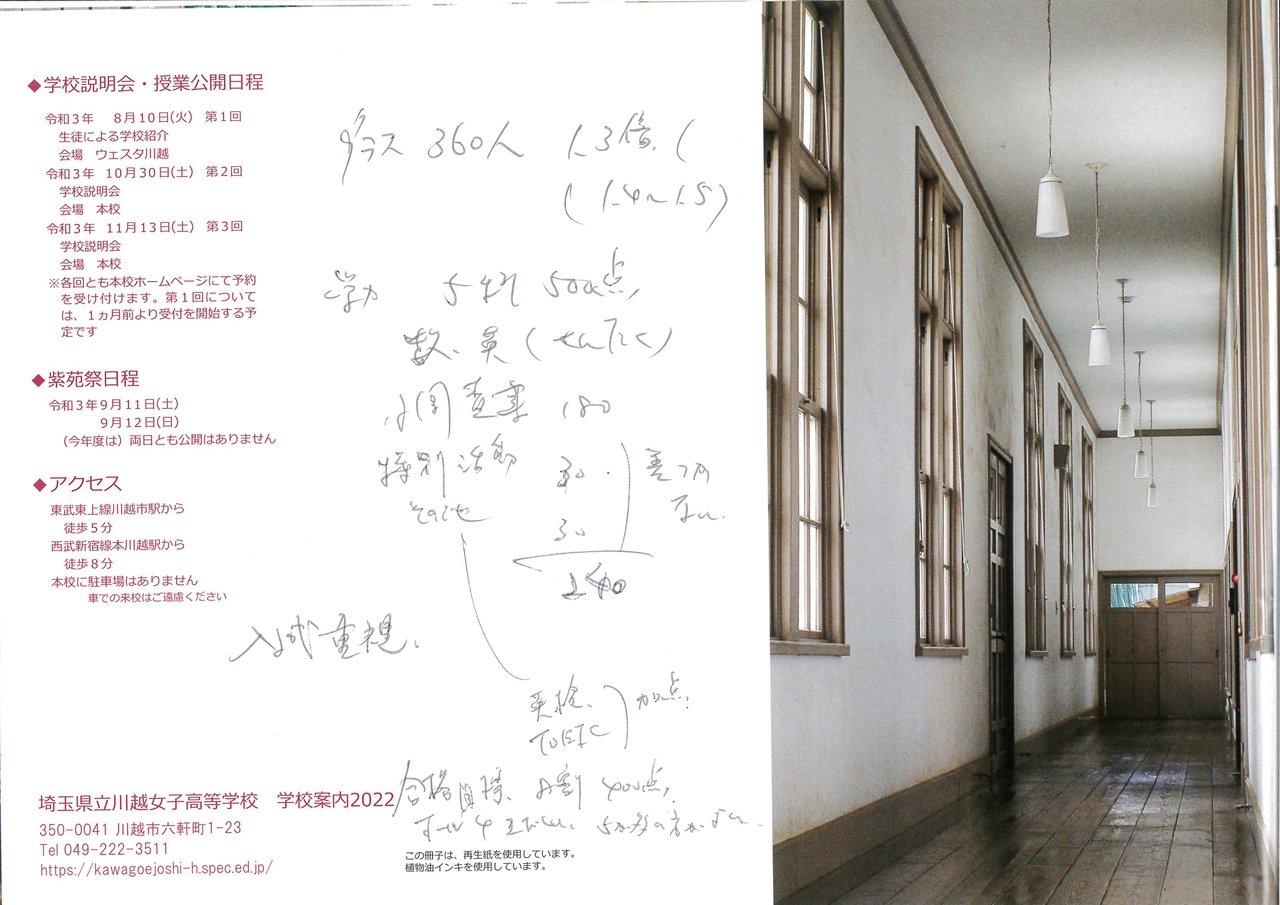 ◆学校説明会・授業公開日程
令和３年　８月１０日(火)　第１回
生徒による学校紹介
会場　ウェスタ川越
令和３年　１０月３０日(土)　第２回
学校説明会
会場　本校
令和３年　１１月１３日(土)　第３回
学校説明会
会場　本校
※各回とも本校ホームページにて予約
を受け付けます。第１回について
は、１ヵ月前より受付を開始する予
定です
◆紫苑祭日程
令和３年９月１１日(土)
９月１２日(日)
（今年度は）両日とも公開はありません
◆アクセス
東武東上線川越市駅から
徒歩５分
西武新宿線本川越駅から
徒歩８分
本校に駐車場はありません
車での来校はご遠慮ください
クラス 360人 1.3倍
(1.4〜1.5)
学力 5科 500点
数、英
調査書 180
特別活動 30
その他 30
240
差つかない
入試重視.
英検、
TOEIC
加点
合格目標、8割 400点
埼玉県立川越女子高等学校　学校案内2022
350-0041 川越市六軒町1-23
Tel 049-222-3511
https://kawagoejoshi-h.spec.ed.jp/
この冊子は、再生紙を使用しています。
植物油インキを使用しています。